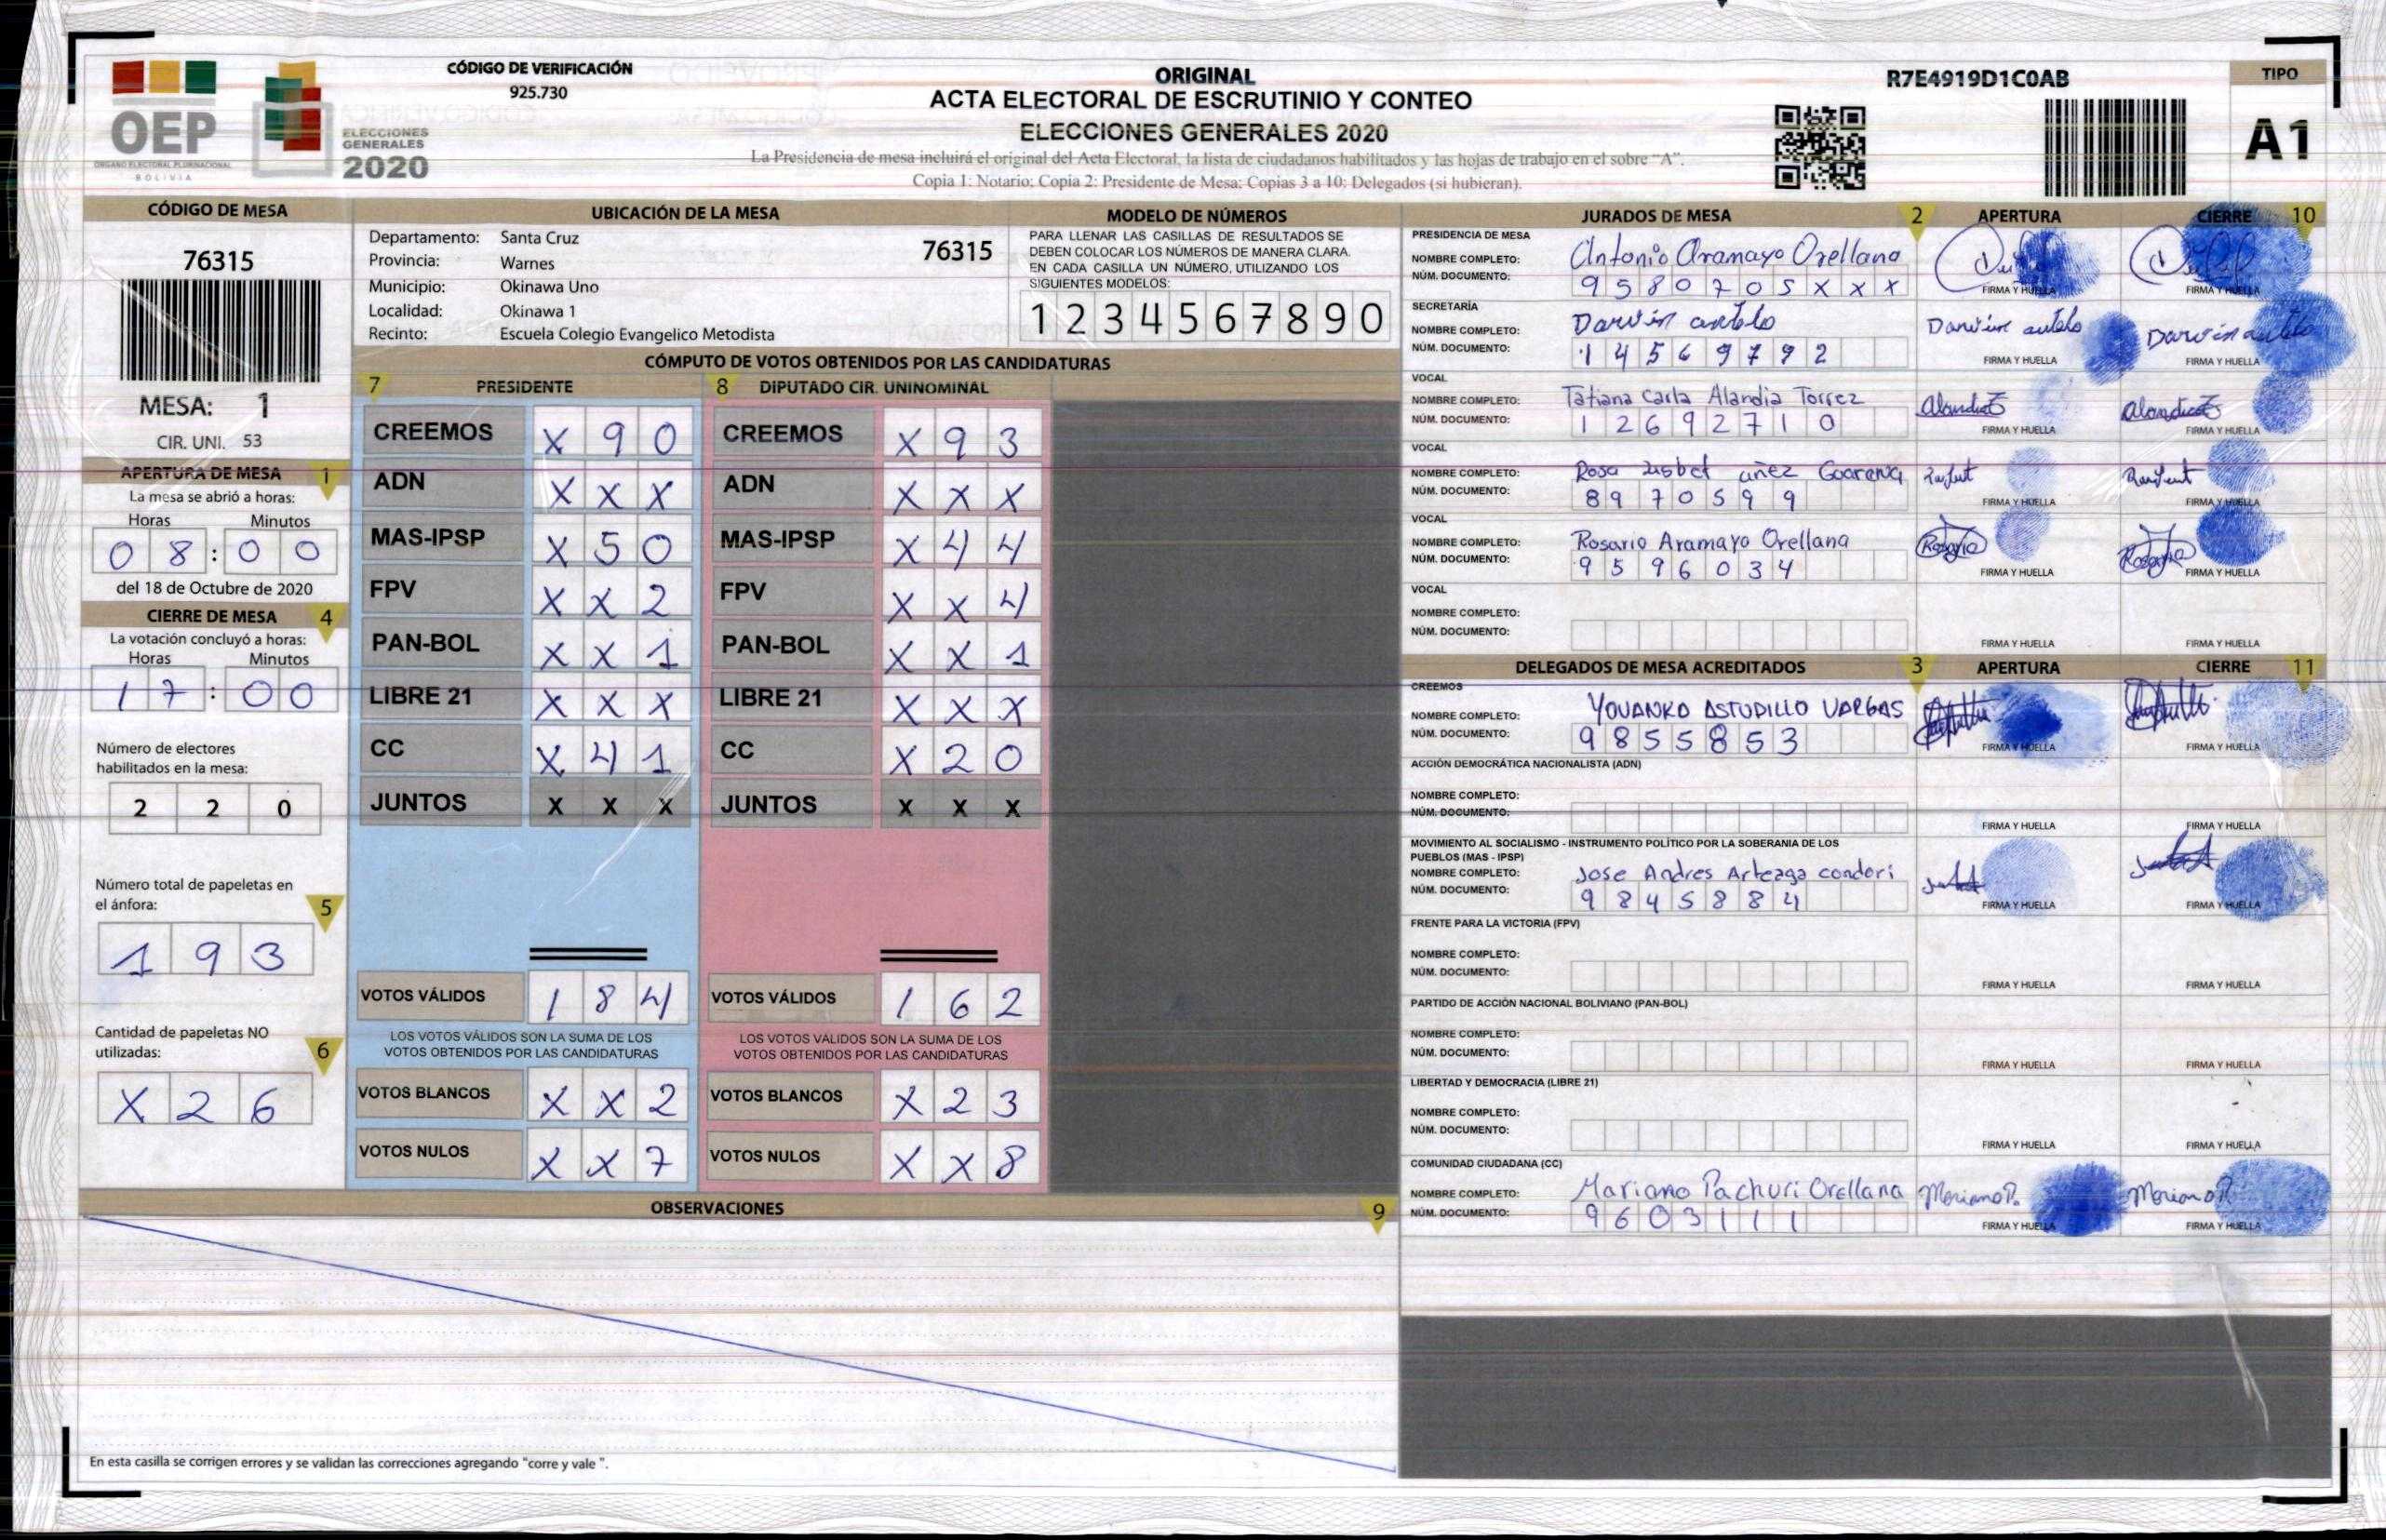 CÓDIGO DE VERIFICACIÓN
925.730
OEP
ÓRGANO ELECTORAL PLURINACIONAL
BOLIVIA
ELECCIONES
GENERALES
2020
ORIGINAL
ACTA ELECTORAL DE ESCRUTINIO Y CONTEO
ELECCIONES GENERALES 2020
La Presidencia de mesa incluirá el original del Acta Electoral, la lista de ciudadanos habilitados y las hojas de trabajo en el sobre "A".
Copia 1: Notario; Copia 2: Presidente de Mesa; Copias 3 a 10: Delegados (si hubieran).
R7E4919D1C0AB
TIPO
A1
CÓDIGO DE MESA
76315
MESA: 1
CIR. UNI. 53
APERTURA DE MESA 1
La mesa se abrió a horas:
Horas Minutos
0 8 : 0 0
del 18 de Octubre de 2020
CIERRE DE MESA 4
La votación concluyó a horas:
Horas Minutos
1 7 : 0 0
Número de electores
habilitados en la mesa:
2 2 0
Número total de papeletas en
el ánfora: 5
1 9 3
Cantidad de papeletas NO
utilizadas: 6
X 2 6
UBICACIÓN DE LA MESA
Departamento: Santa Cruz 76315
Provincia: Warnes
Municipio: Okinawa Uno
Localidad: Okinawa 1
Recinto: Escuela Colegio Evangelico Metodista
MODELO DE NÚMEROS
PARA LLENAR LAS CASILLAS DE RESULTADOS SE
DEBEN COLOCAR LOS NÚMEROS DE MANERA CLARA.
EN CADA CASILLA UN NÚMERO, UTILIZANDO LOS
SIGUIENTES MODELOS:
1 2 3 4 5 6 7 8 9 0
CÓMPUTO DE VOTOS OBTENIDOS POR LAS CANDIDATURAS
7 PRESIDENTE 8 DIPUTADO CIR. UNINOMINAL
CREEMOS X 9 0 CREEMOS X 9 3
ADN X X X ADN X X X
MAS-IPSP X 5 0 MAS-IPSP X 4 4
FPV X X 2 FPV X X 4
PAN-BOL X X 1 PAN-BOL X X 1
LIBRE 21 X X X LIBRE 21 X X X
CC X 4 1 CC X 2 0
JUNTOS X X X JUNTOS X X X
VOTOS VÁLIDOS 1 8 4 VOTOS VÁLIDOS 1 6 2
LOS VOTOS VÁLIDOS SON LA SUMA DE LOS LOS VOTOS VÁLIDOS SON LA SUMA DE LOS
VOTOS OBTENIDOS POR LAS CANDIDATURAS VOTOS OBTENIDOS POR LAS CANDIDATURAS
VOTOS BLANCOS X X 2 VOTOS BLANCOS X 2 3
VOTOS NULOS X X 7 VOTOS NULOS X X 8
OBSERVACIONES 9
En esta casilla se corrigen errores y se validan las correcciones agregando "corre y vale".
JURADOS DE MESA 2 APERTURA CIERRE 10
PRESIDENCIA DE MESA
NOMBRE COMPLETO: Antonio Aramayo Orellano
NÚM. DOCUMENTO: 9 5 8 0 7 0 5 X X X FIRMA Y HUELLA FIRMA Y HUELLA
SECRETARÍA
NOMBRE COMPLETO: Darwin antelo Darwin antelo Darwin antelo
NÚM. DOCUMENTO: 1 4 5 6 9 7 9 2 FIRMA Y HUELLA FIRMA Y HUELLA
VOCAL
NOMBRE COMPLETO: Tatiana Carla Alandia Torrez
NÚM. DOCUMENTO: 1 2 6 9 2 7 1 0 FIRMA Y HUELLA FIRMA Y HUELLA
VOCAL
NOMBRE COMPLETO: Rosa Lisbet añez
NÚM. DOCUMENTO: 8 9 7 0 5 9 9 FIRMA Y HUELLA FIRMA Y HUELLA
VOCAL
NOMBRE COMPLETO: Rosario Aramayo Orellana
NÚM. DOCUMENTO: 9 5 9 6 0 3 4 FIRMA Y HUELLA FIRMA Y HUELLA
VOCAL
NOMBRE COMPLETO:
NÚM. DOCUMENTO: FIRMA Y HUELLA FIRMA Y HUELLA
DELEGADOS DE MESA ACREDITADOS 3 APERTURA CIERRE 11
CREEMOS
NOMBRE COMPLETO: YOUANKO ASTUDILLO VARGAS
NÚM. DOCUMENTO: 9 8 5 5 8 5 3 FIRMA Y HUELLA FIRMA Y HUELLA
ACCIÓN DEMOCRÁTICA NACIONALISTA (ADN)
NOMBRE COMPLETO:
NÚM. DOCUMENTO: FIRMA Y HUELLA FIRMA Y HUELLA
MOVIMIENTO AL SOCIALISMO - INSTRUMENTO POLÍTICO POR LA SOBERANIA DE LOS
PUEBLOS (MAS - IPSP)
NOMBRE COMPLETO: Jose Andres Arteaga condori
NÚM. DOCUMENTO: 9 8 4 5 8 8 4 FIRMA Y HUELLA FIRMA Y HUELLA
FRENTE PARA LA VICTORIA (FPV)
NOMBRE COMPLETO:
NÚM. DOCUMENTO: FIRMA Y HUELLA FIRMA Y HUELLA
PARTIDO DE ACCIÓN NACIONAL BOLIVIANO (PAN-BOL)
NOMBRE COMPLETO:
NÚM. DOCUMENTO: FIRMA Y HUELLA FIRMA Y HUELLA
LIBERTAD Y DEMOCRACIA (LIBRE 21)
NOMBRE COMPLETO:
NÚM. DOCUMENTO: FIRMA Y HUELLA FIRMA Y HUELLA
COMUNIDAD CIUDADANA (CC)
NOMBRE COMPLETO: Mariano Pachuri Orellana Mariano P. Mariano P.
NÚM. DOCUMENTO: 9 6 0 3 1 1 1 FIRMA Y HUELLA FIRMA Y HUELLA